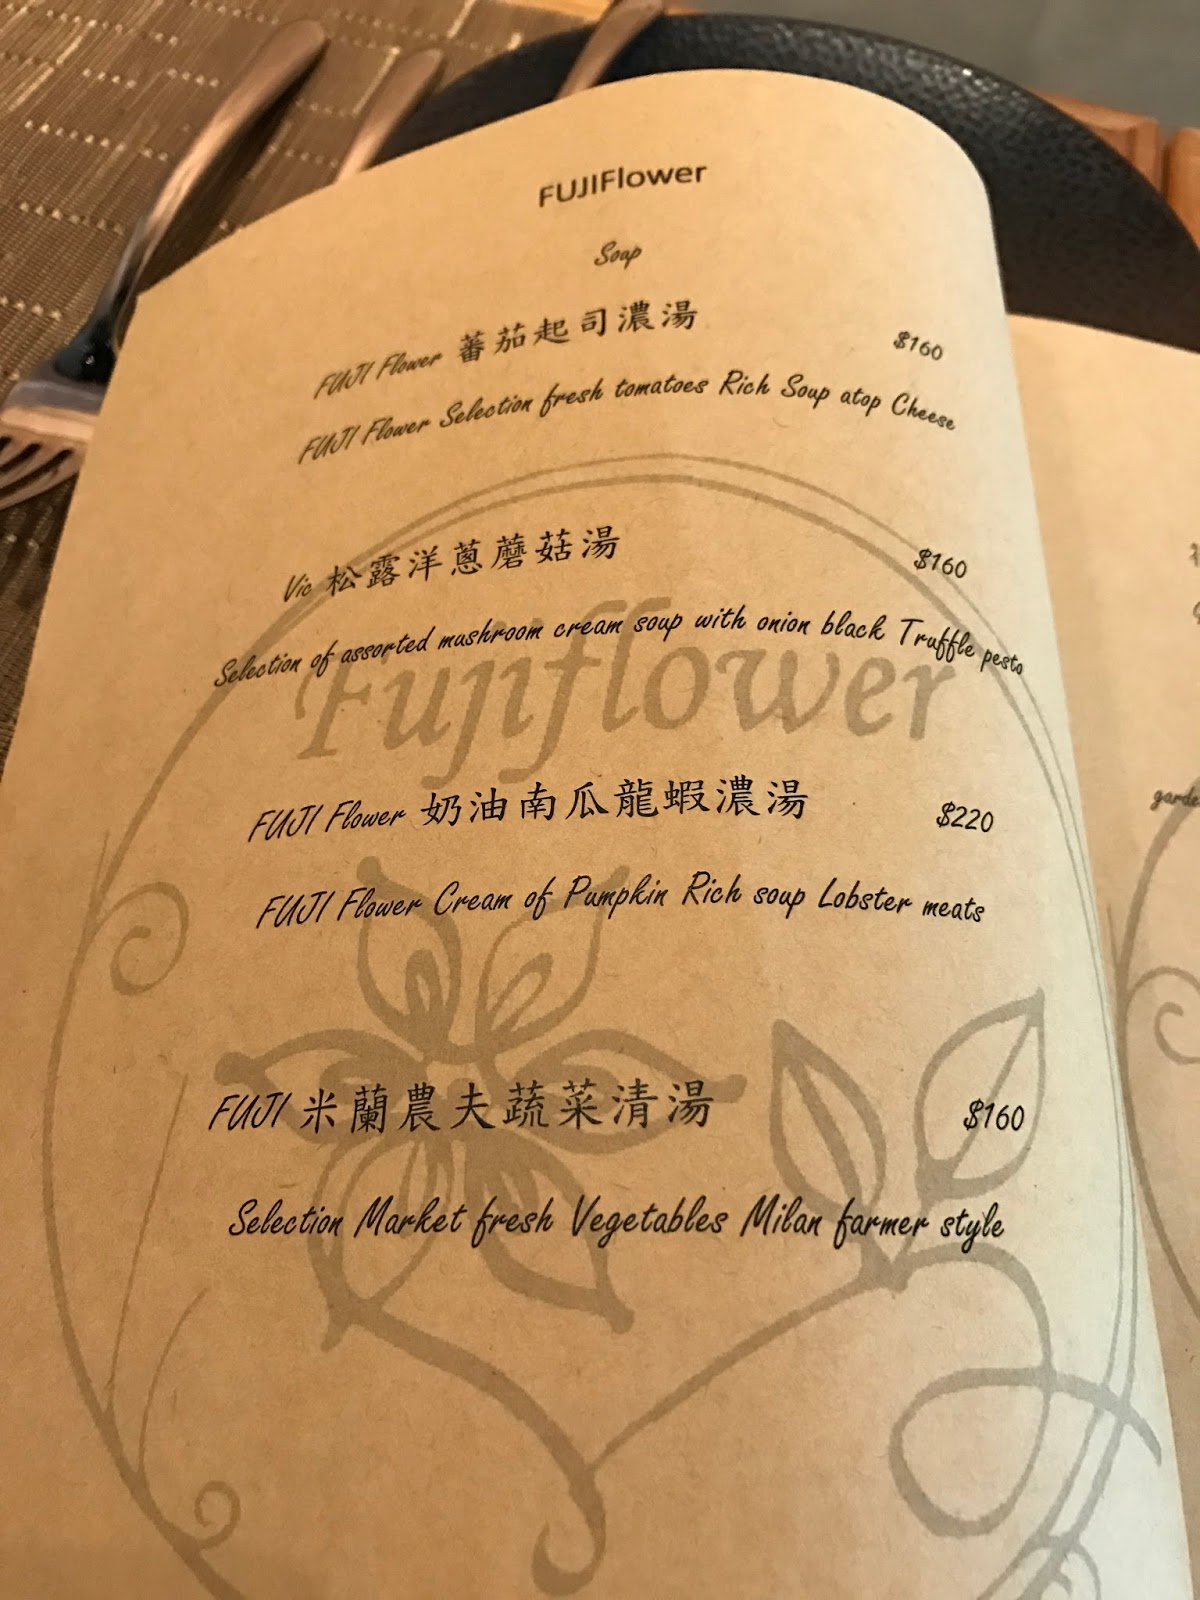 FUJIFlower
Soup
FUJI Flower 蕃茄起司濃湯 $160
FUJI Flower Selection fresh tomatoes Rich Soup atop Cheese
Vic 松露洋蔥蘑菇湯 $160
Selection of assorted mushroom cream soup with onion black Truffle pesto
Fujiflower
FUJI Flower 奶油南瓜龍蝦濃湯 $220
FUJI Flower Cream of Pumpkin Rich soup Lobster meats
FUJI 米蘭農夫蔬菜清湯 $160
Selection Market fresh Vegetables Milan farmer style